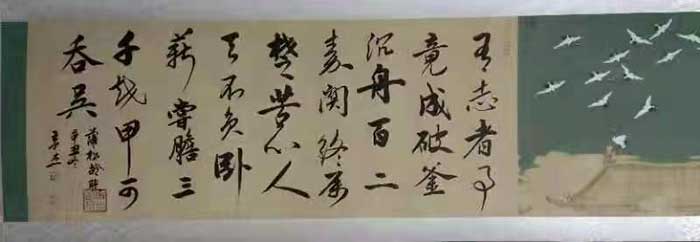 有志者事
竟成破釜
沉舟百二
秦関终属
楚苦心人
天不负卧
薪嘗膽三
千越甲可
吞吴
蒲松龄联
辛丑冬